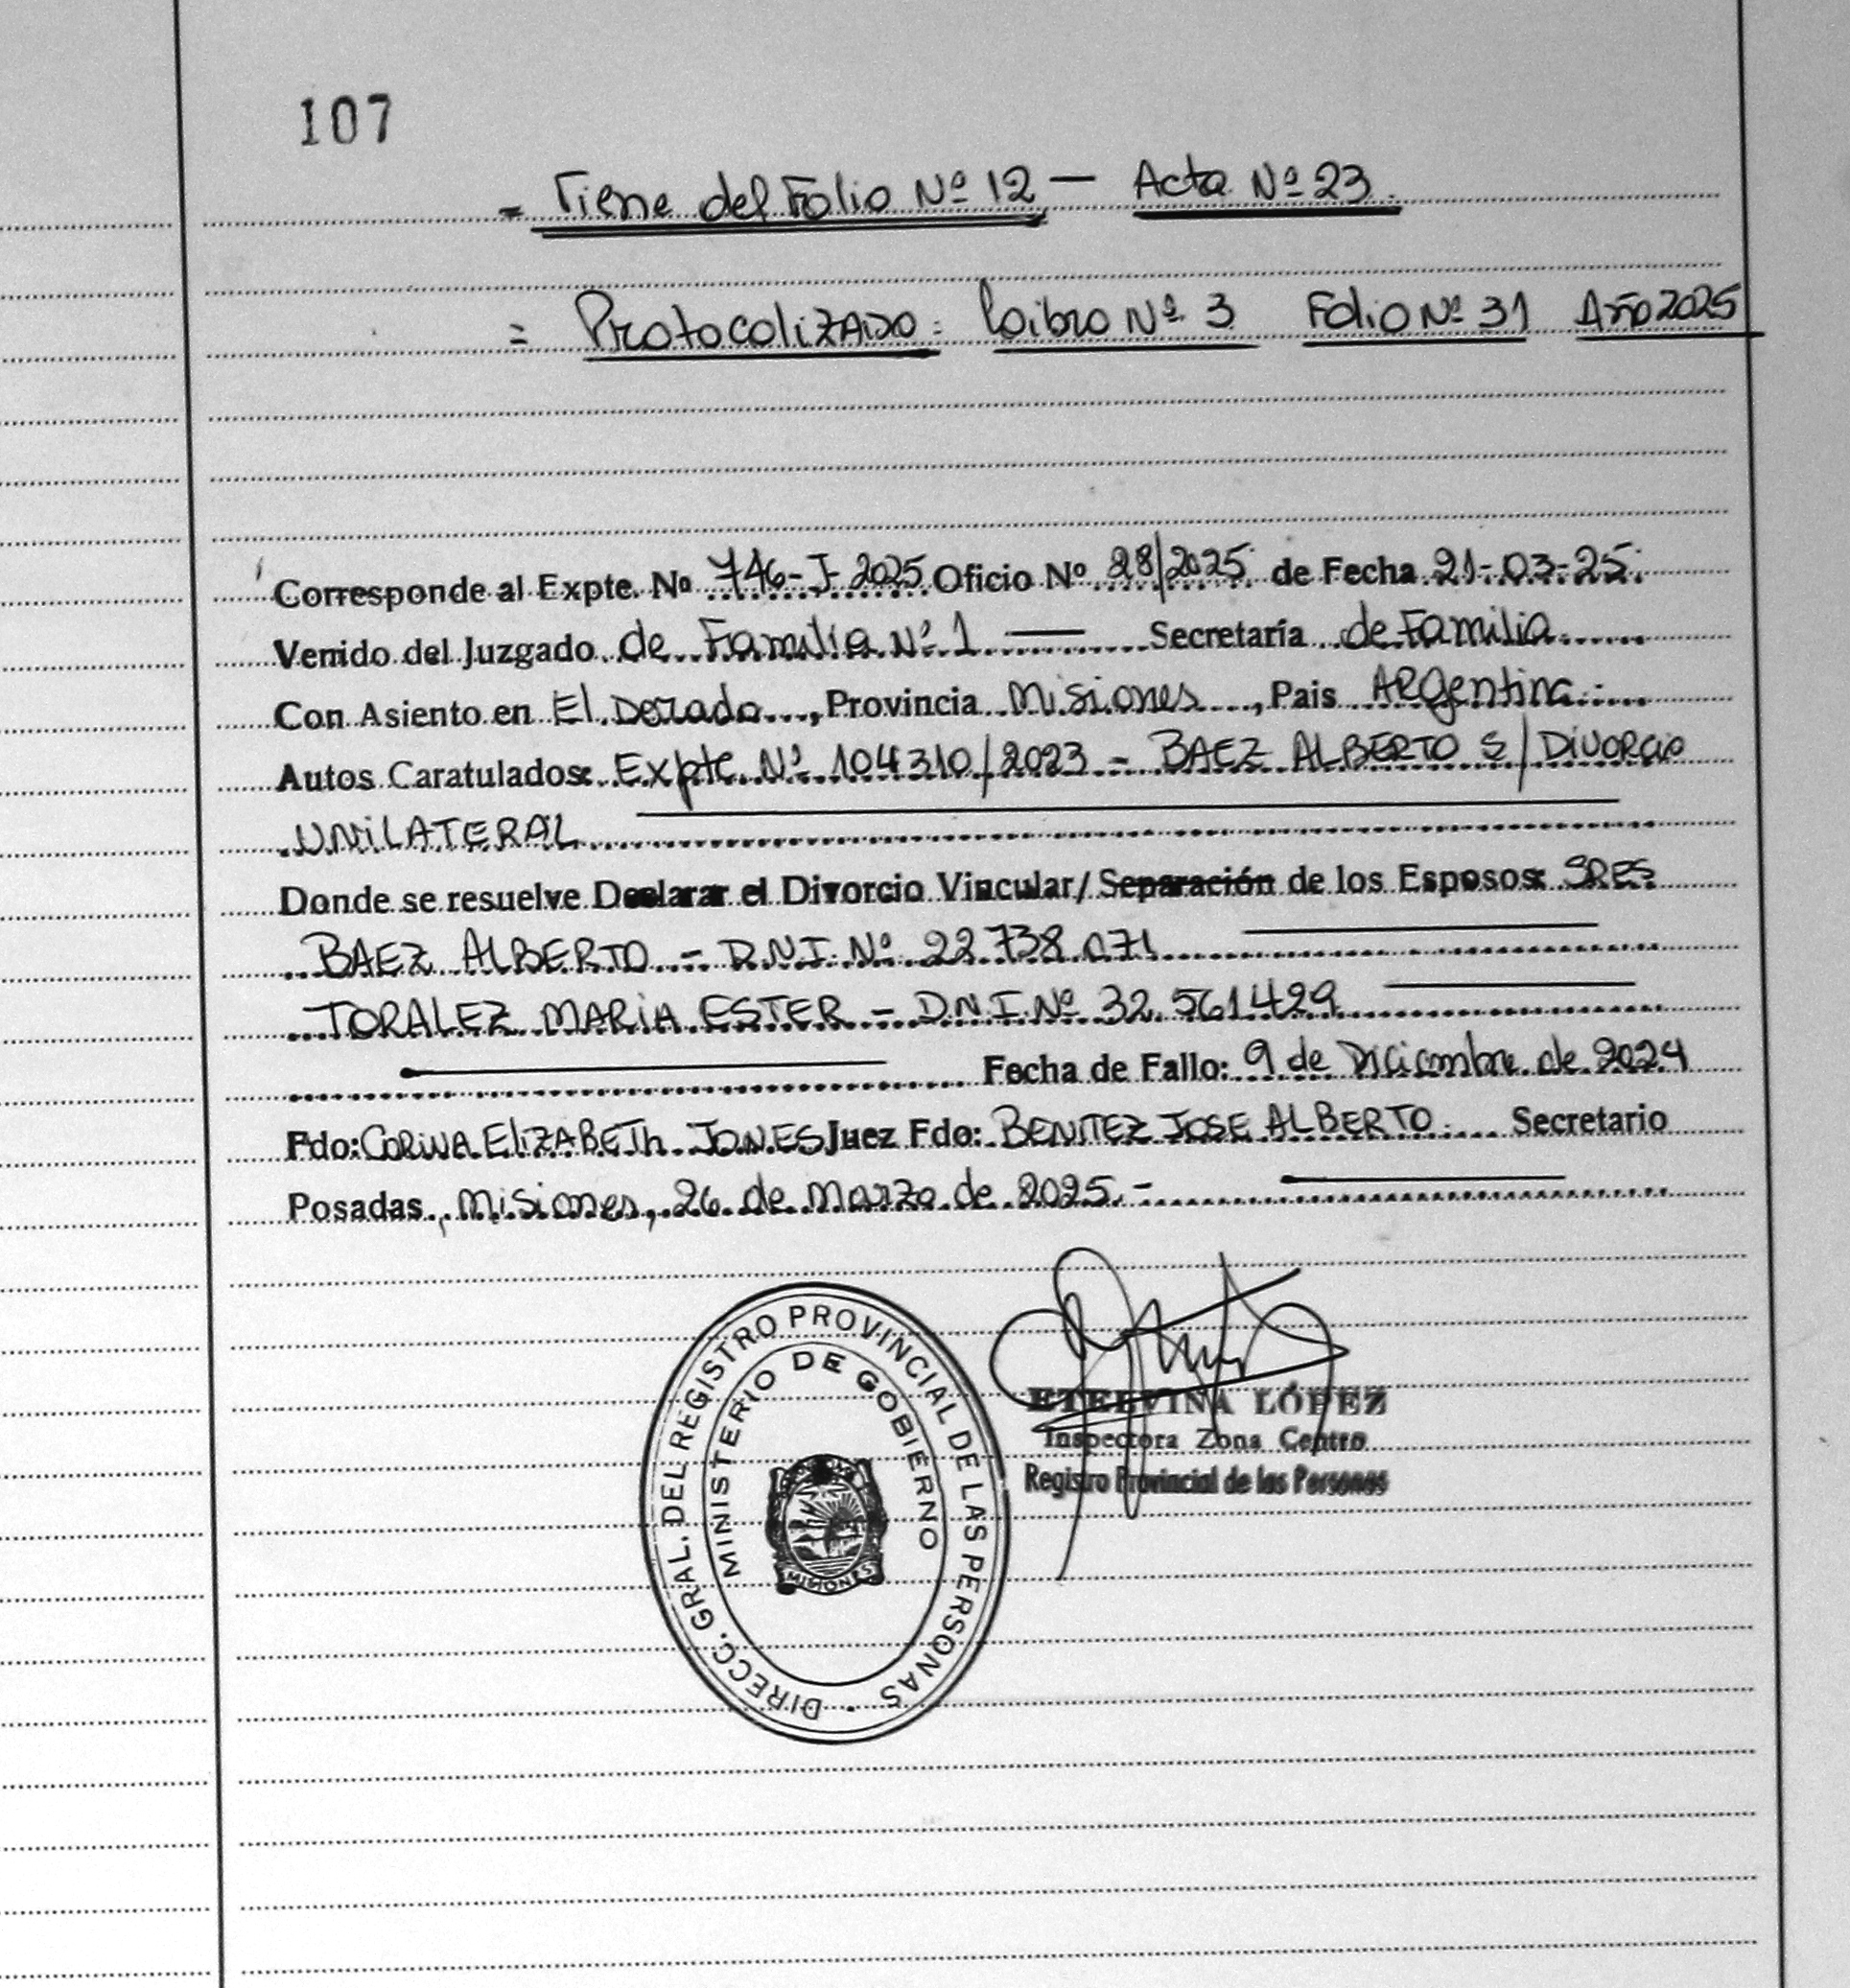 107
= Viene del Folio Nº 12 — Acta Nº 23.
= Protocolizado: Libro Nº 3 Folio Nº 31 Año 2025
Corresponde al Expte. Nº 746-J-2025 Oficio Nº 28/2025 de Fecha 21-03-25.
Venido del Juzgado de Familia Nº 1 — Secretaría de Familia
Con Asiento en El Dorado, Provincia Misiones, Pais Argentina.-
Autos Caratulados: Expte. Nº 104310/2023 - BAEZ ALBERTO S/ DIVORCIO
UNILATERAL
Donde se resuelve Declarar el Divorcio Vincular/ Separación de los Esposos: SRES
BAEZ ALBERTO - D.N.I. Nº 22.738.071
TORALEZ MARIA ESTER - D.N.I. Nº 32.561429
Fecha de Fallo: 9 de Diciembre de 2024
Fdo: CORINA ELIZABETH JONES Juez Fdo: BENITEZ JOSE ALBERTO. Secretario
Posadas, Misiones, 26 de Marzo de 2025.-
DIRECC. GRAL. DEL REGISTRO PROVINCIAL DE LAS PERSONAS
MINISTERIO DE GOBIERNO
MISIONES
ETELVINA LÓPEZ
Inspectora Zona Centro
Registro Provincial de las Personas